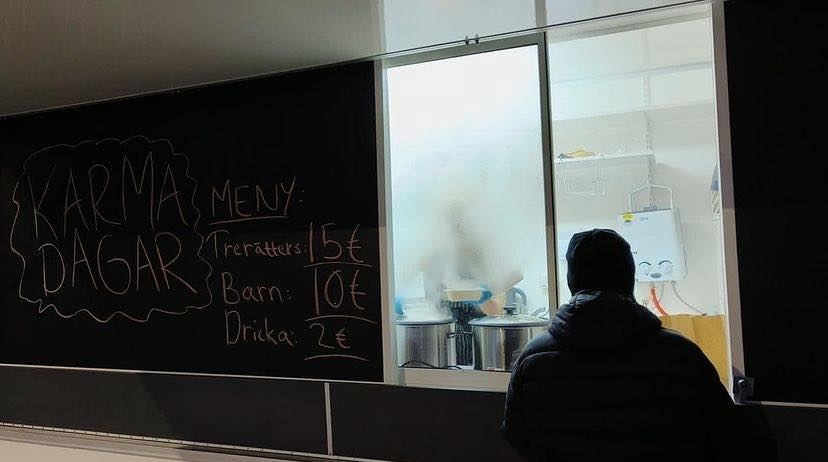 KARMA
DAGAR
MENY:
Trerätters: 15€
Barn: 10€
Dricka: 2€